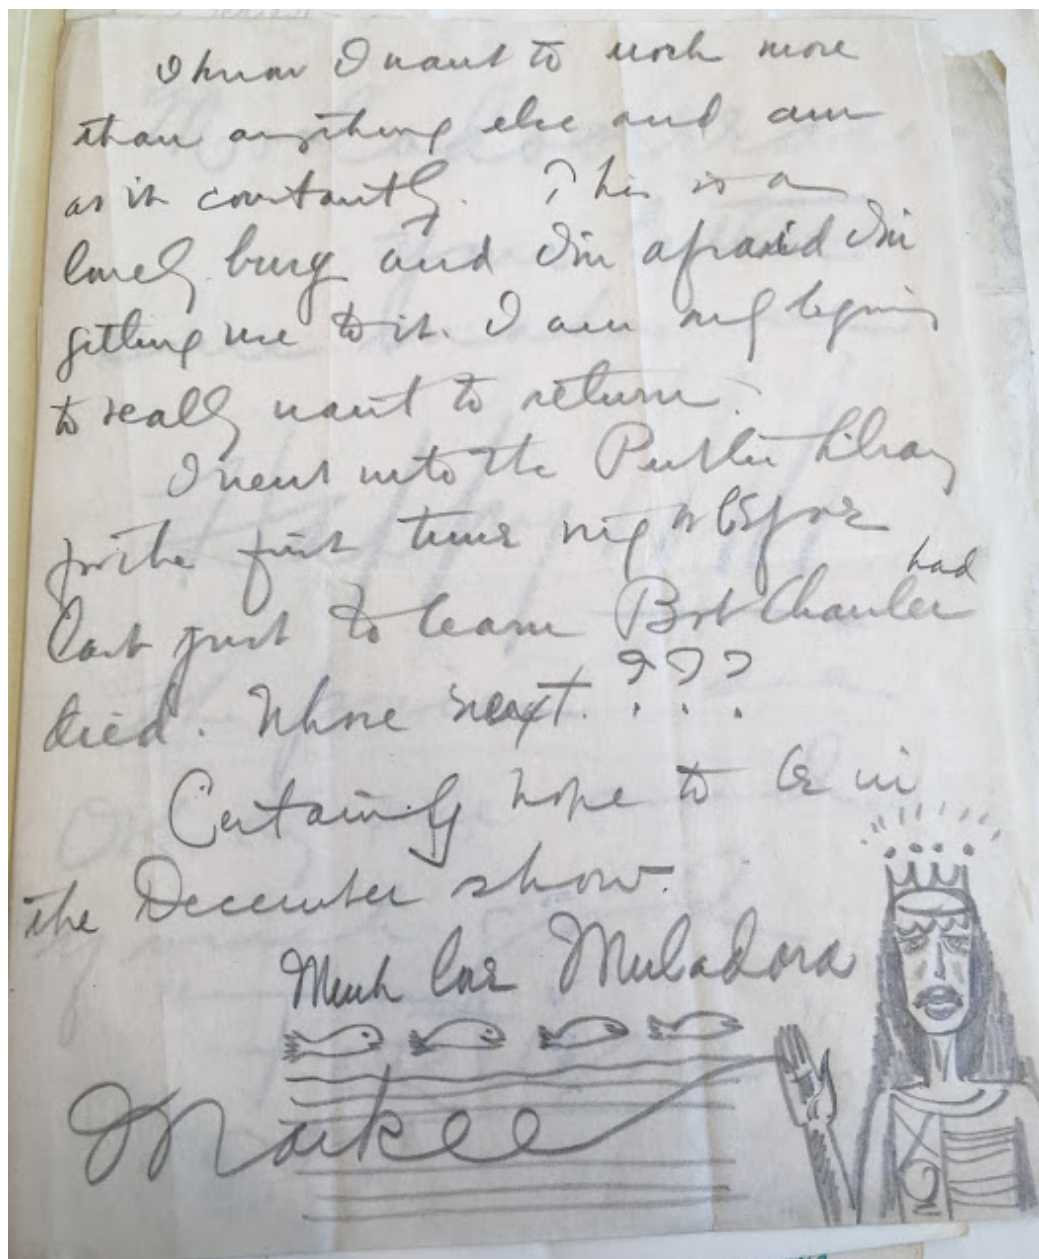 I know I want to work more
than anything else and am
as it constantly. This is a
lovely burg and I'm afraid I'm
getting use to it. I am only begining
to really want to return.
I went into the Public Library
for the first time night before
last just to learn Bob Chanler had
died. Whose next. ???
Certainly hope to be in
the December show.
Much love Muladora
Markee